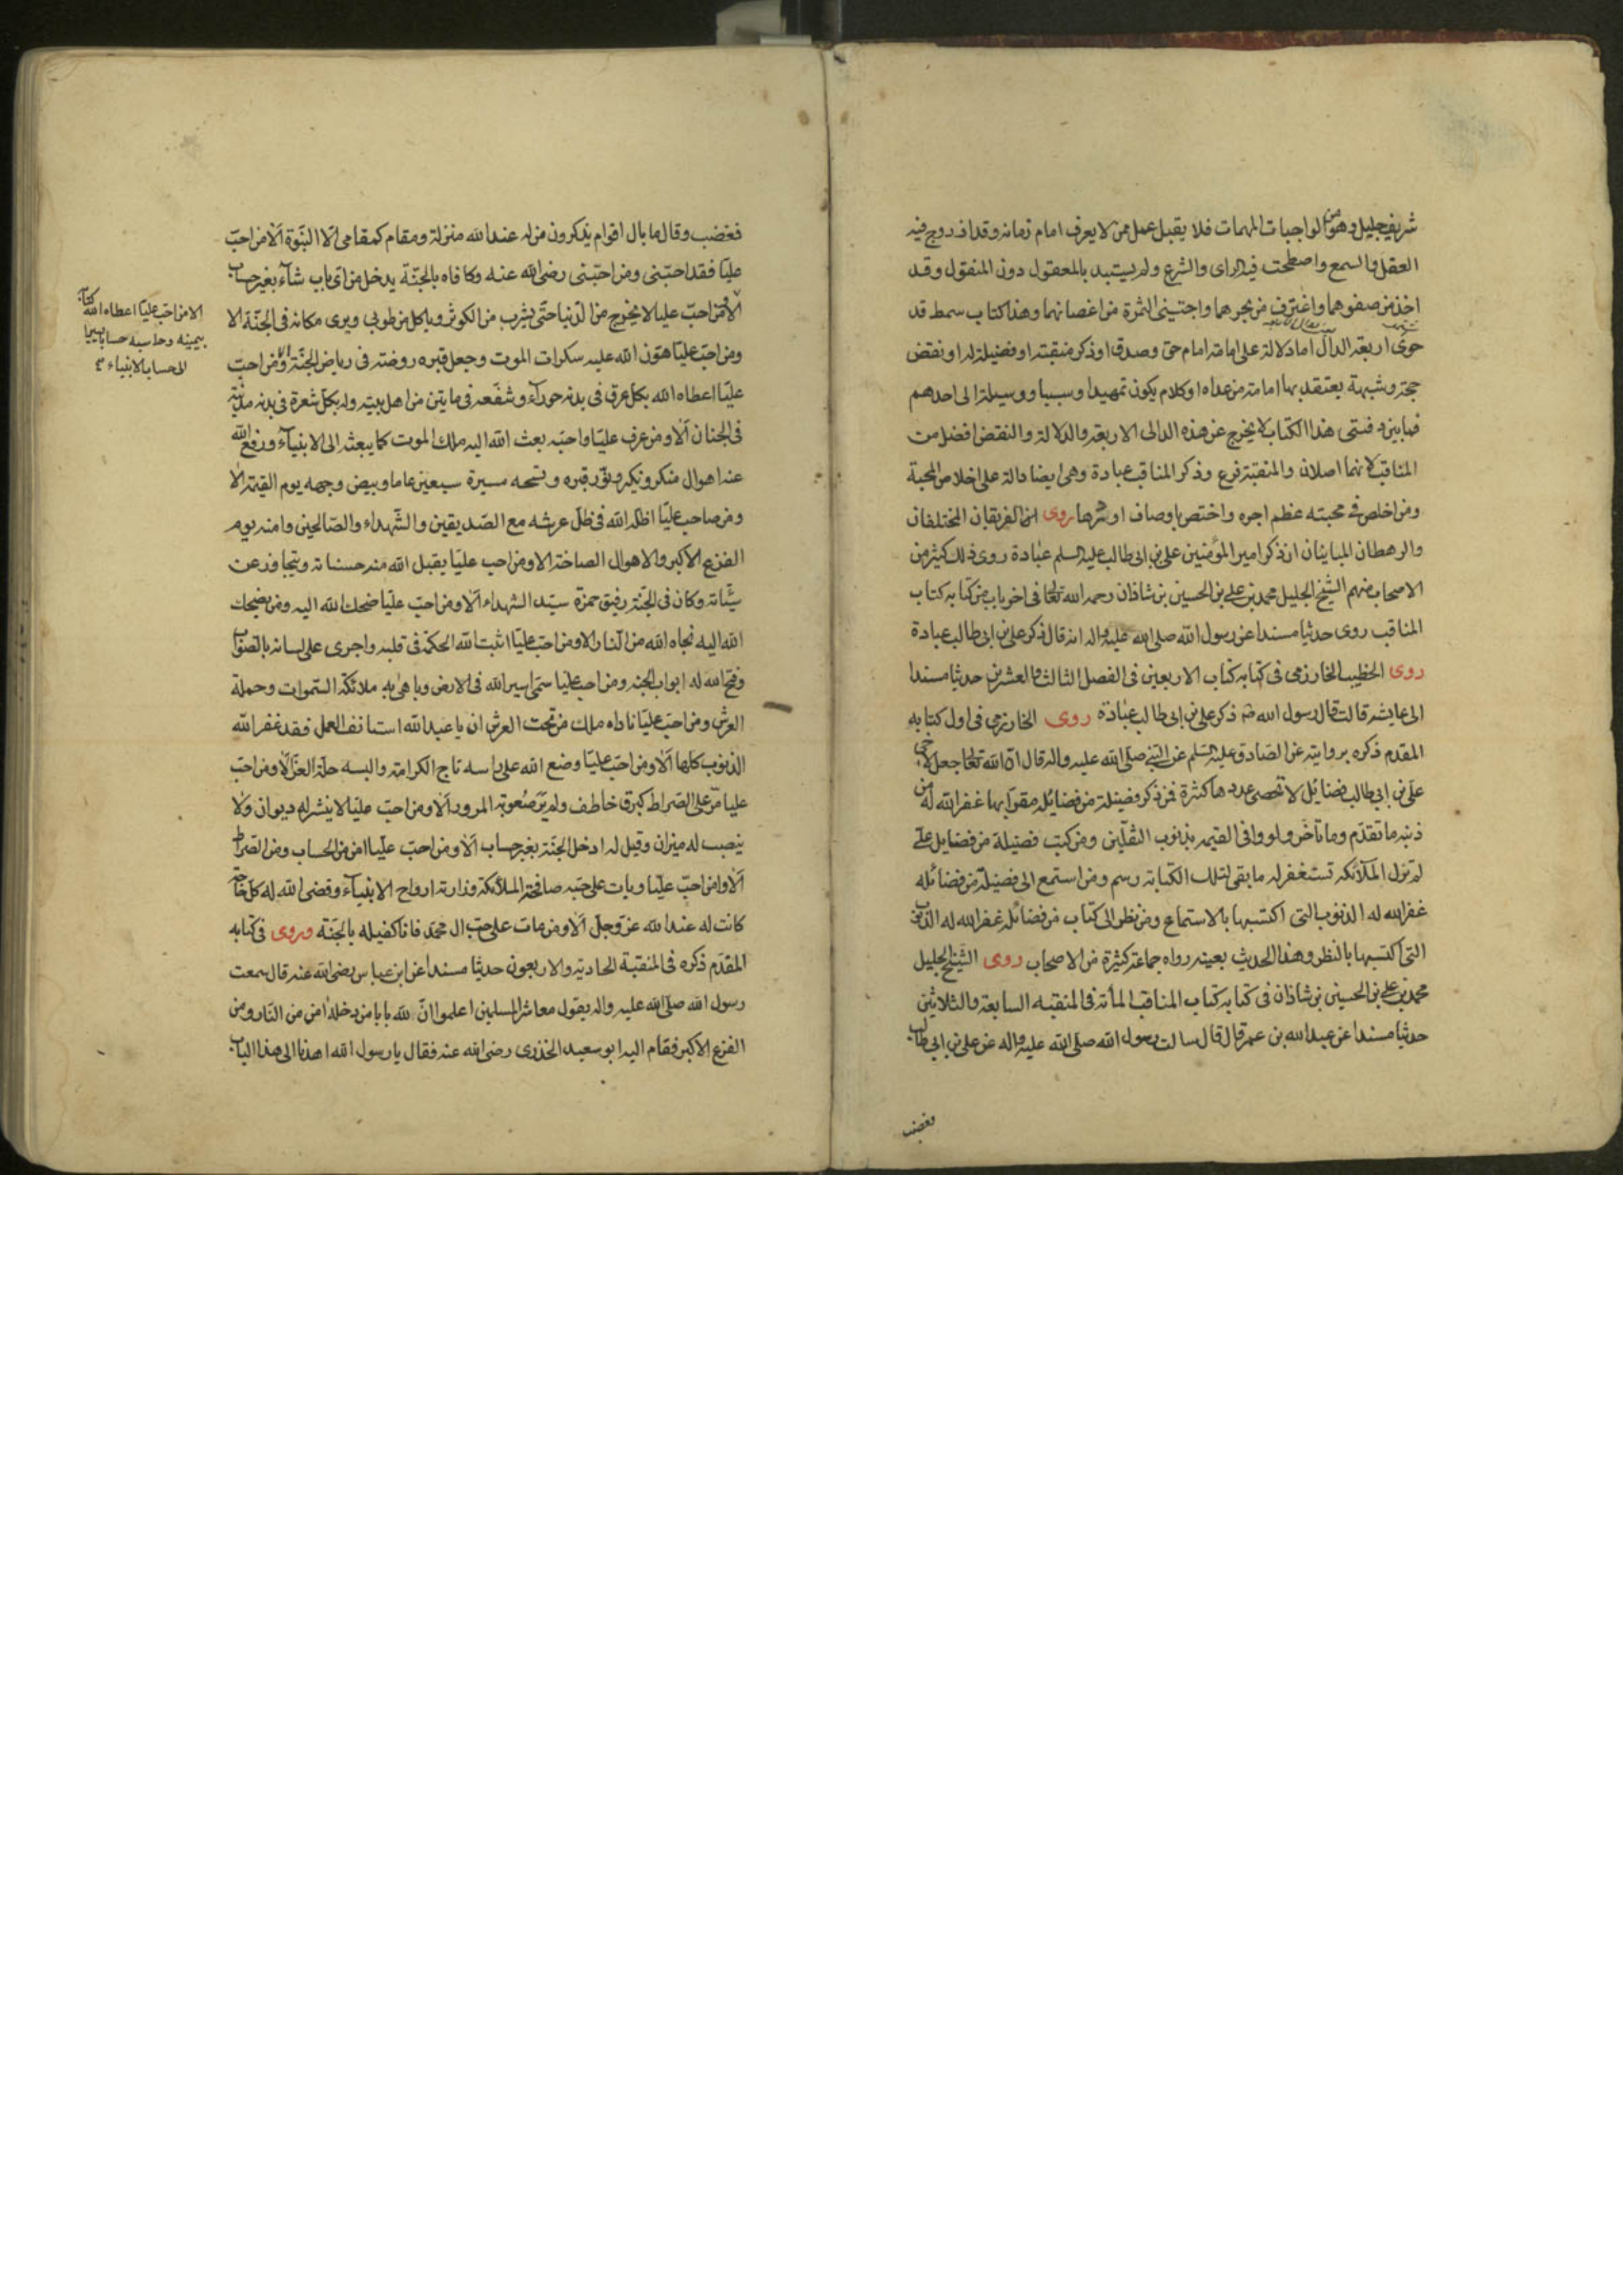 شريف جليل وهو من الواجبات المهمات فلا يقبل عمل ممن لا يعرف امام زمانه وقد ازدوج فيه
العقل والسمع واصطحت فيه الراى والشرع ولم يستبد بالمعقول دون المنقول وقد
اخذ من صفوهما واغترف من بحرهما واجتنى الثمرة من اغصانهما وهذا كتاب سمط قد
حوى اربعة الدال اما دلالة على امامة امام حق وصدق او ذكر منقبته او فضيلة له او نقض
حجة وشبهة يعتقد بها امامة من عداه او كلام يكون تمهيدا وسببا ووسيلة الى احدهم
فما بين دفتى هذا الكتاب لا يخرج عن هذه الدالى الاربعة والدلالة والنقض افضل من
المناقب لانهما اصلان والمنقبة فرع وذكر المناقب عبادة وهى ايضا دالة على اخلاص المحبة
ومن اخلص فى محبته عظم اجره واختص باوصاف اوثرها روى الفريقان المختلفان
والرهطان المباينان ان ذكر امير المؤمنين على بن ابى طالب عليه السلم عبادة روى ذلك كثير من
الاصحاب منهم الشيخ الجليل محمد بن على بن الحسين بن شاذان رحمه الله تعالى فى اخر باب من كتابه كتاب
المناقب روى حديثا مسندا عن رسول الله صلى الله عليه واله انه قال ذكر على بن ابى طالب عبادة
روى الخطيب الخارزمى فى كتابه كتاب الاربعين فى الفصل الثالث والعشرين حديثا مسندا
الى عايشة قالت قال رسول الله ص ذكر على بن ابى طالب عبادة روى الخارزمى فى اول كتابه
المقدم ذكره بروايته عن الصادق عليه السلم عن النبى صلى الله عليه واله قال ان الله تعالى جعل لاخى
على بن ابى طالب فضائل لا تحصى عددها كثرة فمن ذكر فضيلة من فضائله مقرا بها غفر الله له من
ذنبه ما تقدم وما تاخر ولو وافى القيمه بذنوب الثقلين ومن كتب فضيلة من فضايل على
لم تزل الملائكه تستغفر له ما بقى لتلك الكتابة رسم ومن استمع الى فضيلة من فضائله
غفر الله له الذنوب التى اكتسبها بالاستماع ومن نظر الى كتاب من فضائله غفر الله له الذنوب
التى اكتسبها بالنظر وهذا الحديث بعينه رواه جماعة كثيرة من الاصحاب روى الشيخ الجليل
محمد بن على بن الحسين بن شاذان فى كتابه كتاب المناقب المأة فى المنقبه السابعة والثلاثين
حديثا مسندا عن عبد الله بن عمر قال قال سالت رسول الله صلى الله عليه واله عن على بن ابى طالب
فغضب
فغضب وقال ما بال اقوام يذكرون من له عند الله منزلة ومقام كمقامى الا النبوة الا من احب
عليا فقد احبنى ومن احبنى رضى الله عنه وكافاه بالجنة يدخل من اى باب شاء بغير حساب
الا ومن احب عليا لا يخرج من الدنيا حتى يشرب من الكوثر وياكل من طوبى ويرى مكانه فى الجنة الا
ومن احب عليا هون الله عليه سكرات الموت وجعل قبره روضه فى رياض الجنة الا ومن احب
عليا اعطاه الله بكل عرق فى بدنه حوراء وشفعه فى مايتن من اهل بيته وله بكل شعرة فى بدنه مدينة
فى الجنان الا ومن عرف عليا واحبه بعث الله اليه ملك الموت كما يبعث الى الانبياء ورفع الله
عنه اهوال منكر ونكير ونور قبره وفسحه مسيرة سبعين عاما وبيض وجهه يوم القيمة الا
ومن صاحب عليا اظله الله فى ظل عرشه مع الصديقين والشهداء والصالحين وامنه يوم
الفزع الاكبر والاهوال الصاخة الا ومن احب عليا يقبل الله منه حسناته ويتجاوز عن
سيئاته وكان فى الجنة رفيق حمزة سيد الشهداء الا ومن احب عليا ضحك الله اليه ومن يضحك
الله اليه نجاه الله من النار الا ومن احب عليا اثبت الله الحكمة فى قلبه واجرى على لسانه بالصواب
وفتح الله له ابواب الجنه ومن احب عليا سمى اسير الله فى الارض وباهى به ملائكة السموات وحملة
العرش ومن احب عليا ناداه ملك من تحت العرش ان يا عبد الله استانف العمل فقد غفر الله
الذنوب كلها الا ومن احب عليا وضع الله على راسه تاج الكرامة والبسه حلة العز الا ومن احب
عليا مر على الصراط كبرق خاطف ولم ير صعوبة المرور الا ومن احب عليا لا ينشر له ديوان ولا
ينصب له ميزان وقيل له ادخل الجنة بغير حساب الا ومن احب عليا امن من الحساب ومن الصراط
الا وامن احب عليا وبات على حبه صافحته الملائكة وزارته ارواح الانبياء وقضى الله له كل حاجة
كانت له عند الله عز وجل الا ومن مات على حب ال محمد فانا كفيله بالجنة وروى فى كتابه
المقدم ذكره فى المنقبة الحادية والاربعون حديثا مسندا عن ابن عباس رضى الله عنه قال سمعت
رسول الله صلى الله عليه واله يقول معاشر المسلمين اعلموا ان لله بابا من دخله امن من النار ومن
الفزع الاكبر فقام اليه ابو سعيد الخدرى رضى الله عنه فقال يا رسول الله اهدنا الى هذا الباب
الا من احب عليا اعطاه الله كتابه
بيمينه وحاسبه حسابا
الحساب الانبياء